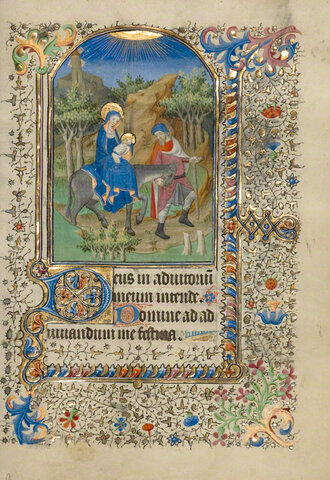 Deus in adiutoriū
meum intende.
Domine ad ad
iuuandum me festina.